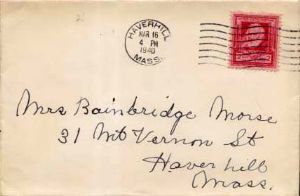 HAVERHILL
MAR 16
4 PM
1940
MASS.
Mrs Bainbridge Morse
31 Mt Vernon St
Haverhill
Mass.